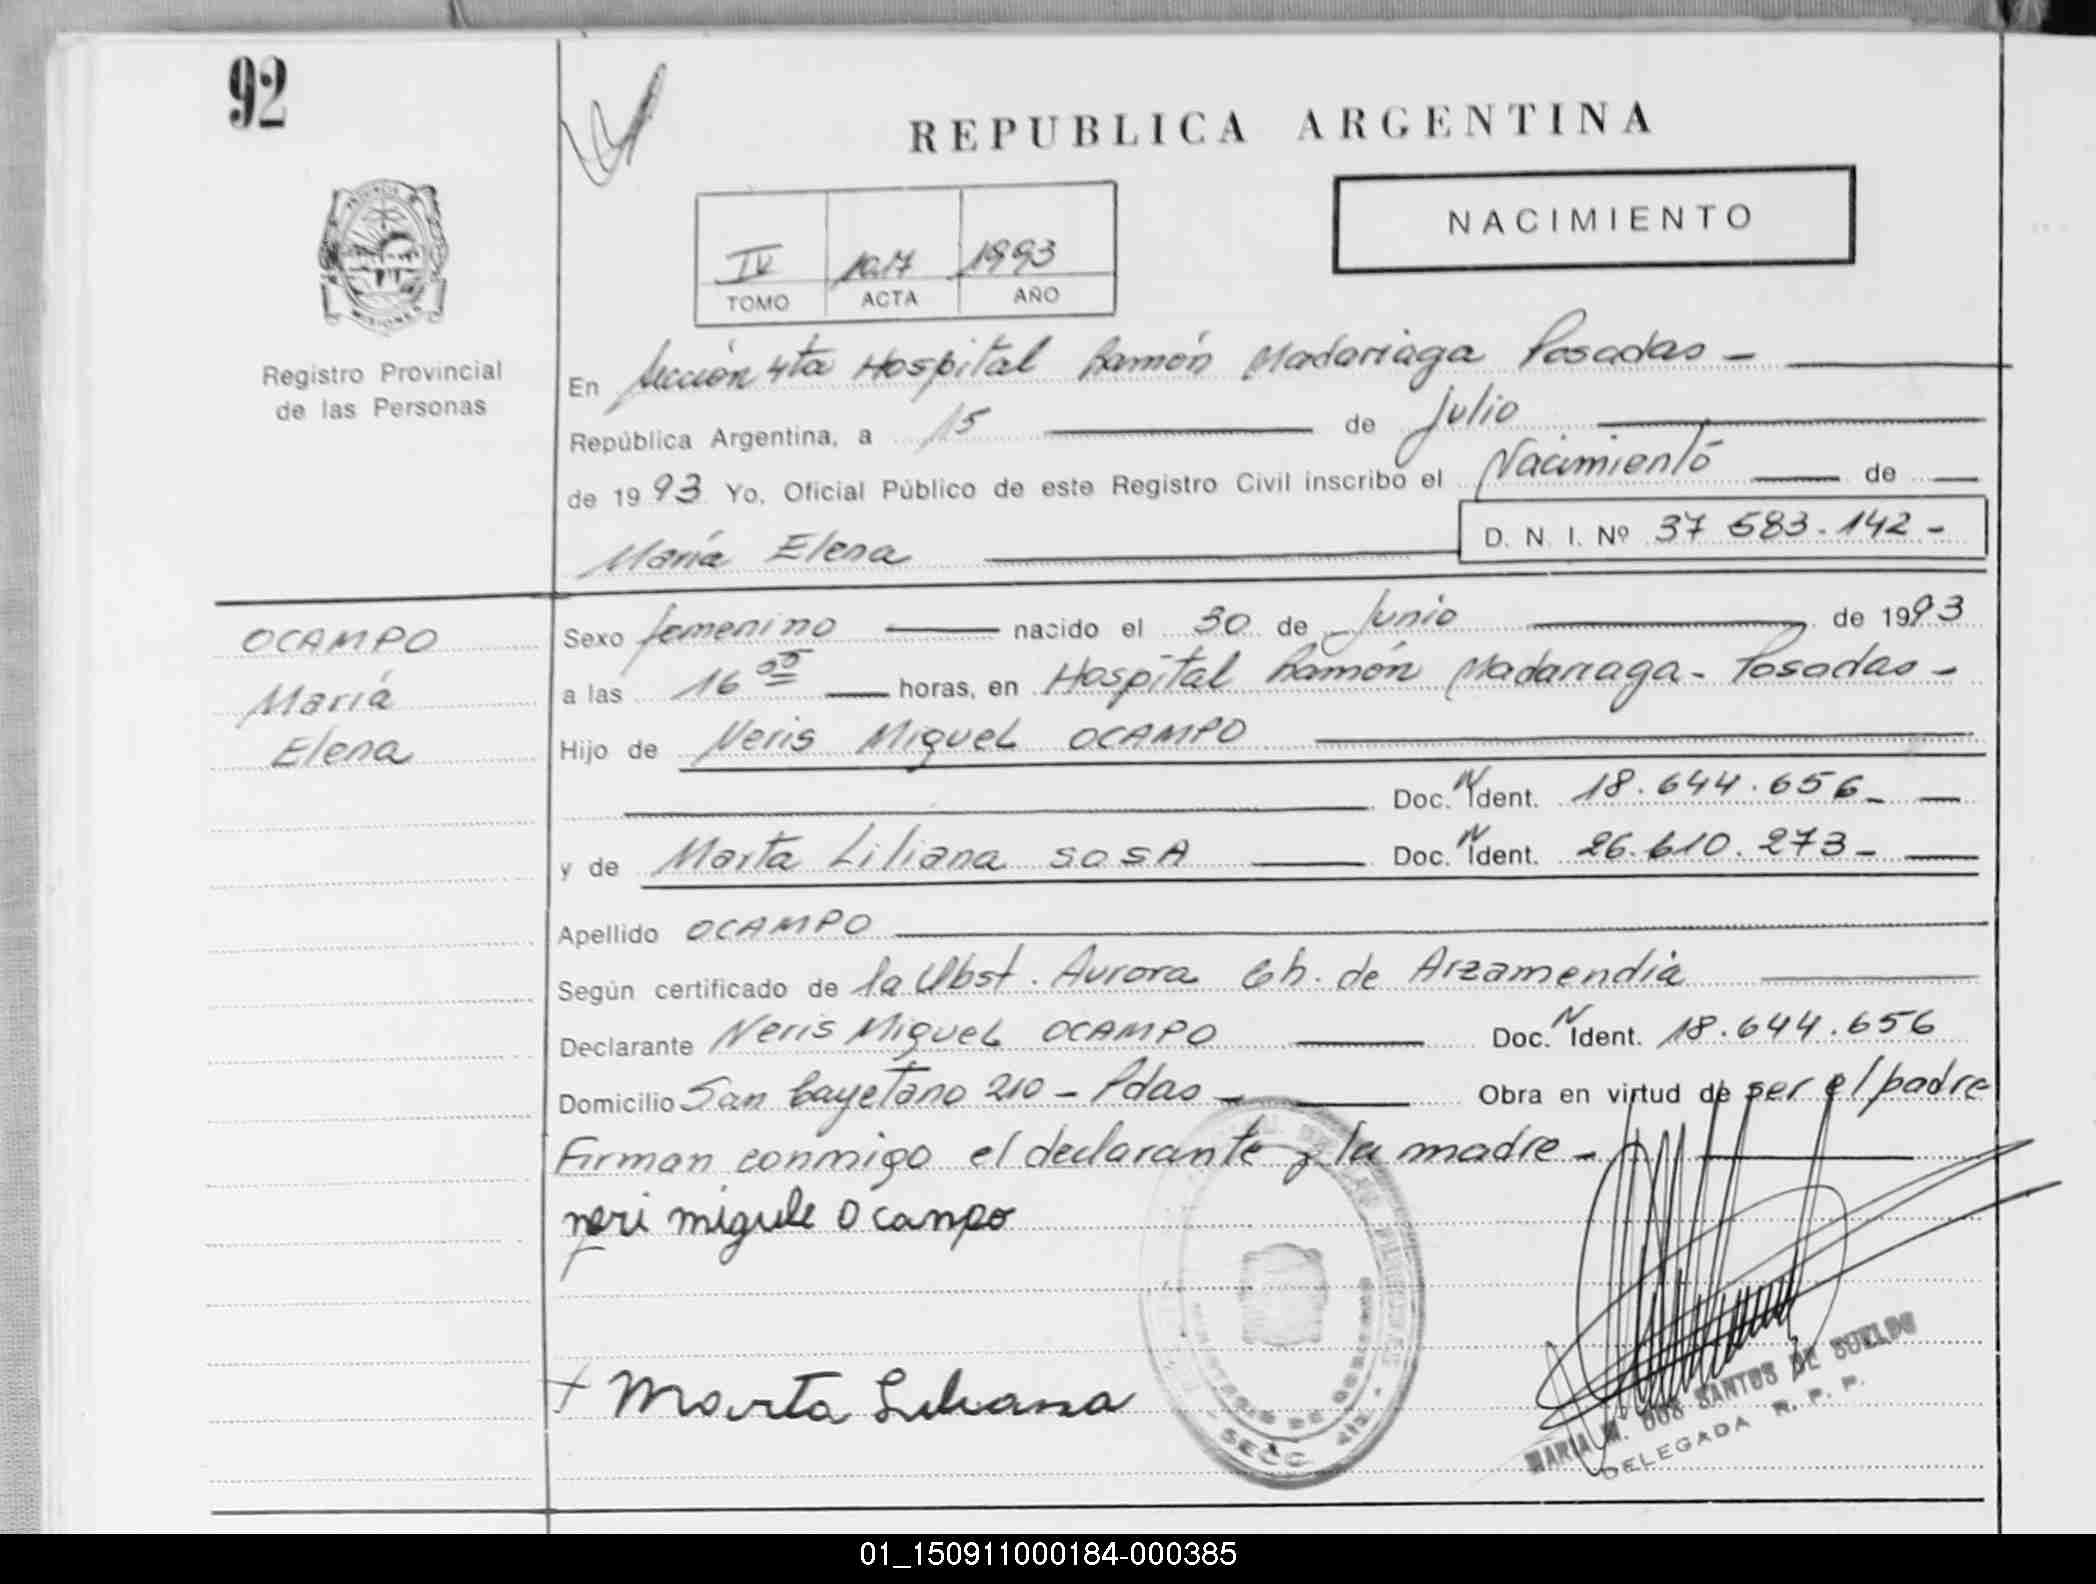 92
REPUBLICA ARGENTINA
NACIMIENTO
IV 1017 1993
TOMO ACTA AÑO
PROVINCIA
MISIONES
Registro Provincial
de las Personas
En Sección 4ta Hospital Ramón Madariaga Posadas -
República Argentina, a 15 de Julio
de 1993 Yo, Oficial Público de este Registro Civil inscribo el Nacimiento de
María Elena
D. N. I. Nº 37 583.142 -
OCAMPO
María
Elena
Sexo femenino nacido el 30 de Junio de 1993
a las 16 05 horas, en Hospital Ramón Madariaga - Posadas -
Hijo de Neris Miguel OCAMPO
Doc. N Ident. 18.644.656 -
y de Marta Liliana SOSA Doc. N Ident. 26.610.273 -
Apellido OCAMPO
Según certificado de la Obst. Aurora Ch. de Arzamendia
Declarante Neris Miguel OCAMPO Doc. N Ident. 18.644.656
Domicilio San Cayetano 210 - Pdas - Obra en virtud de ser el padre
Firman conmigo el declarante y la madre -
neri migule Ocanpo
Marta Liliana
MINISTERIO DE GOBIERNO
SECC 4ta.
MARIA M. DOS SANTOS DE SUELDO
DELEGADA R. P. P.
01_150911000184-000385